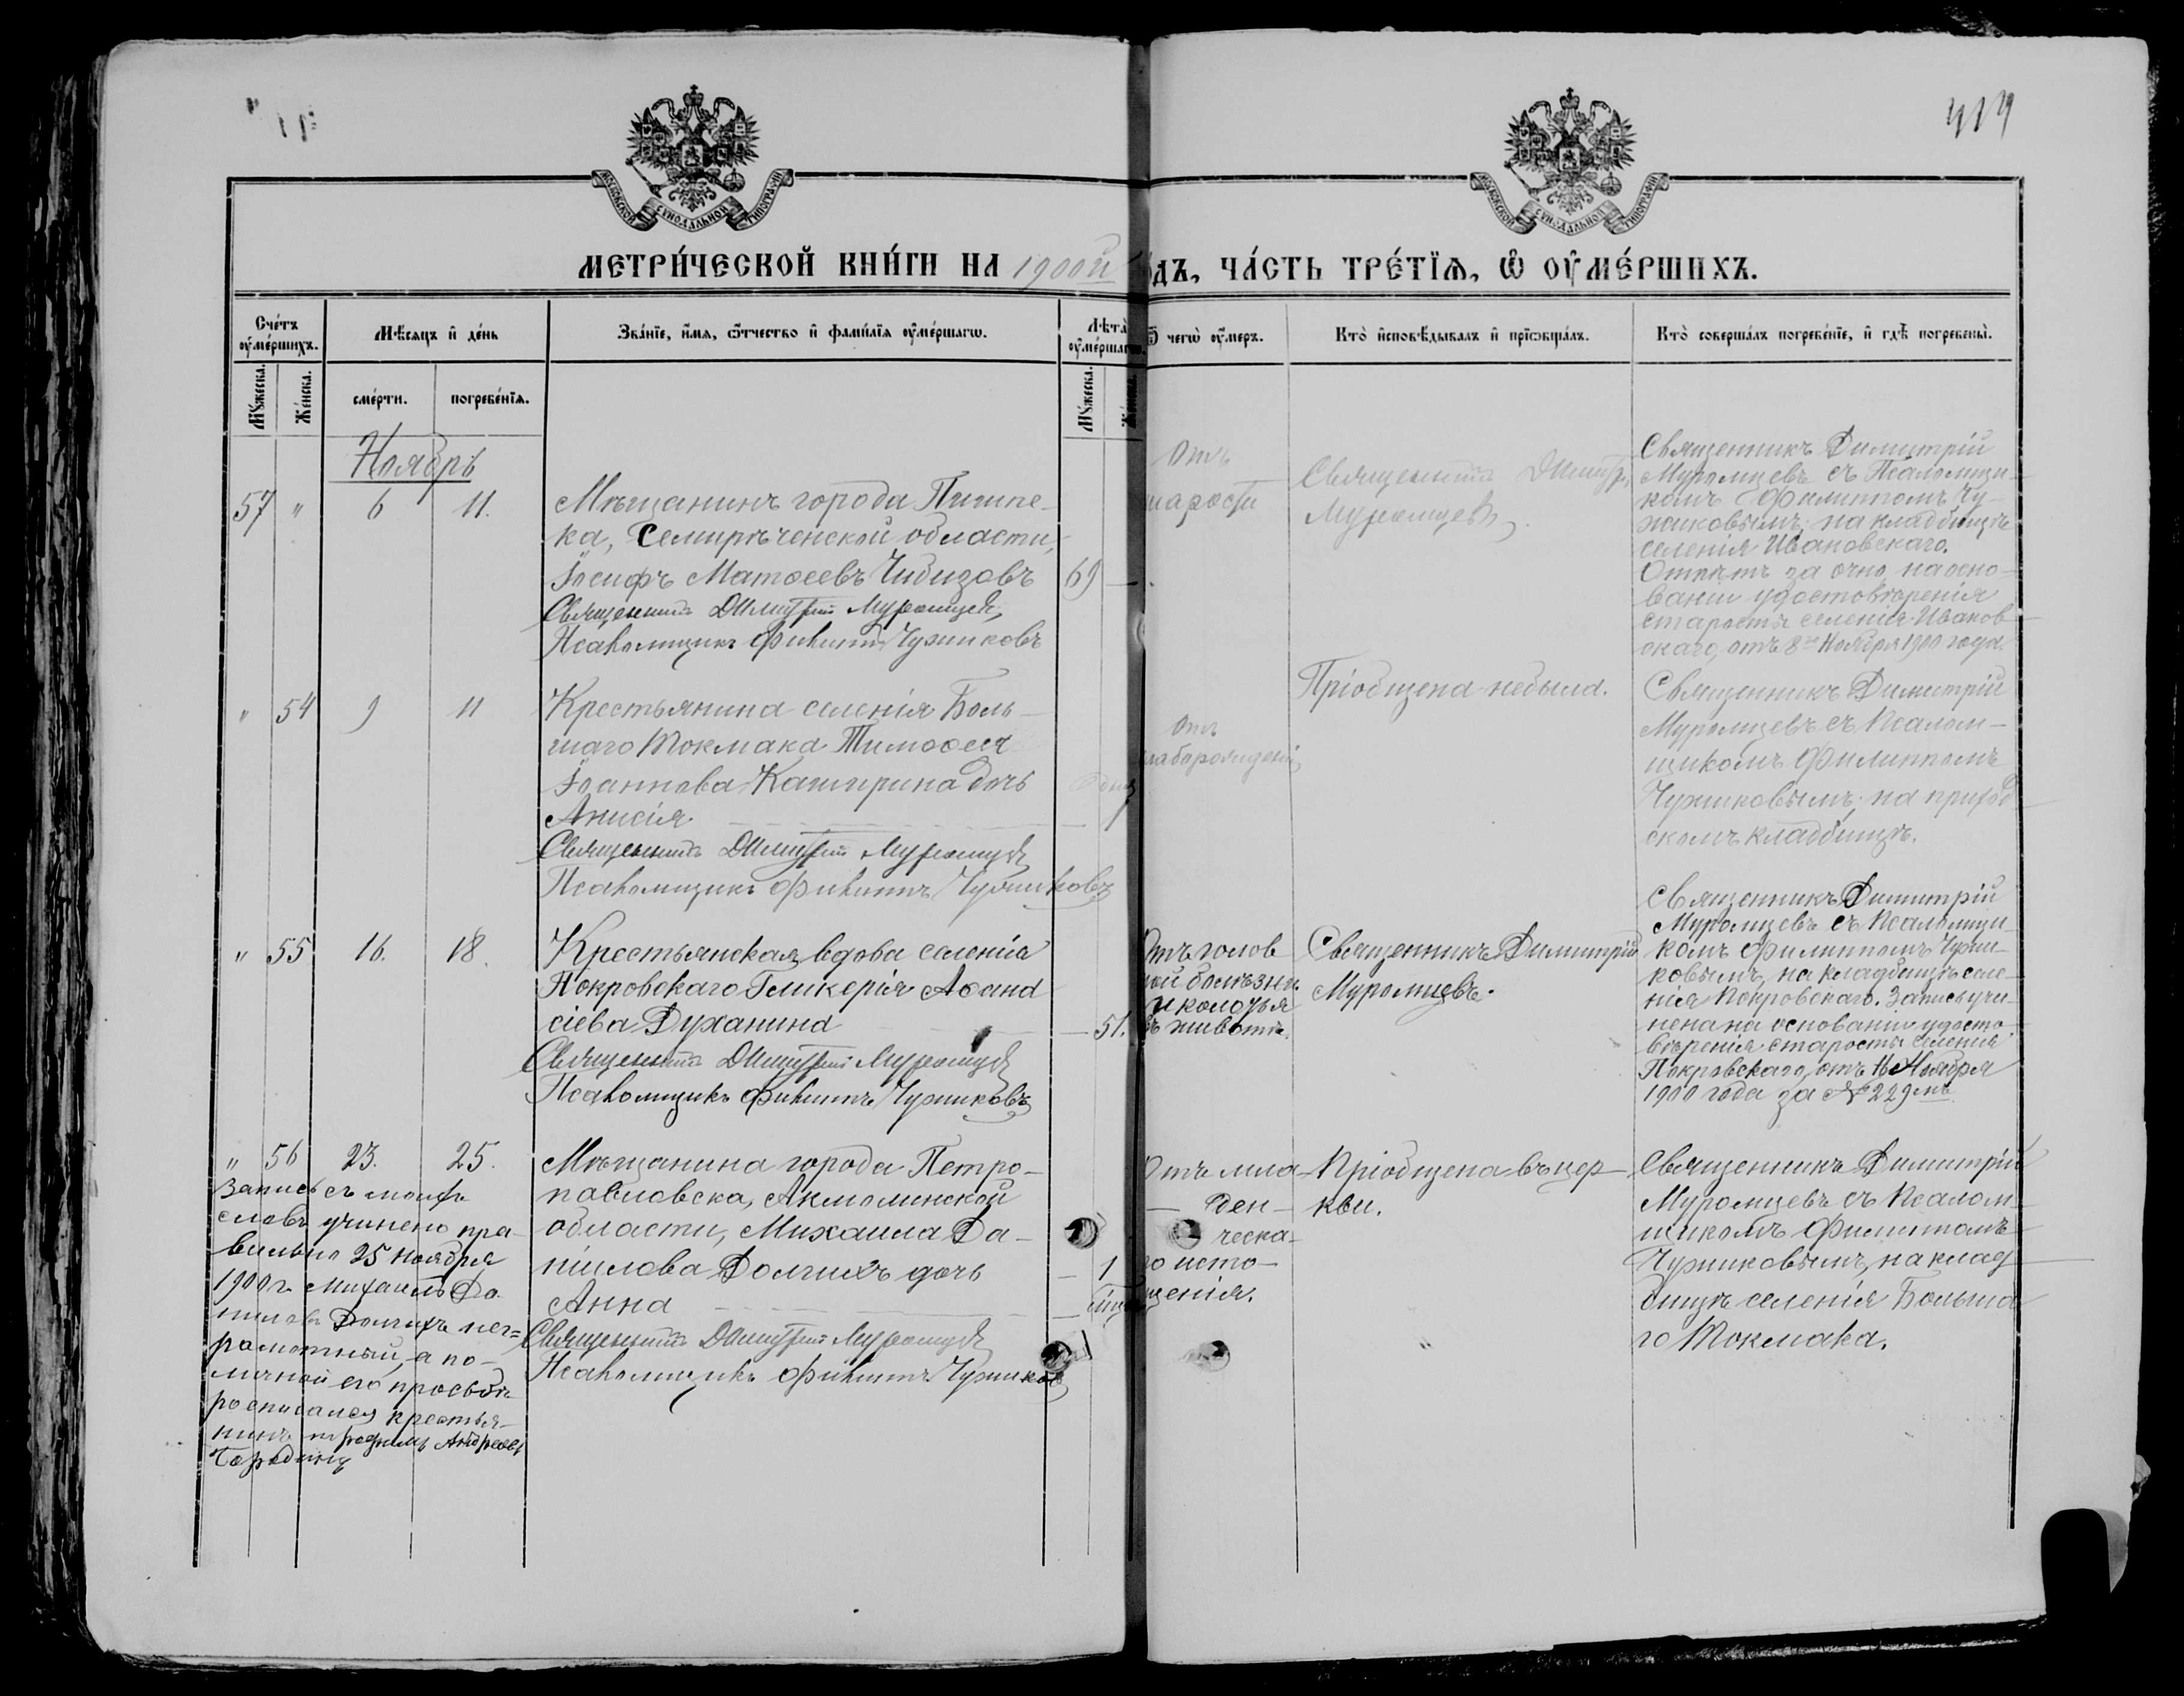 419
МОСКОВСКОЙ СѴНОДАЛЬНОЙ ТИПОГРАФІИ
МОСКОВСКОЙ СѴНОДАЛЬНОЙ ТИПОГРАФІИ
МЕТРИ́ЧЕСКОЙ КНИ́ГИ НА 1900й
ДЪ, ЧА́СТЬ ТРЕ́ТІѦ, Ѡ ОУ҆МЕ́РШИХЪ.
Сче́тъ оу҆ме́ршихъ.
Мꙋ́жеска.
Же́нска.
Мѣ́сѧцъ и҆ де́нь
сме́рти.
погребе́нїѧ.
Зва́нїе, и҆́мѧ, ѻ҆́тчество и҆ фамѝлїѧ оу҆ме́ршагѡ.
Лѣ́та оу҆ме́ршагѡ.
Мꙋ́жеска.
Ѿ чегѡ̀ оу҆́меръ.
Кто̀ и҆сповѣ́дывалъ и҆ прїѡбща́лъ.
Кто̀ соверша́лъ погребе́нїе, и҆ гдѣ̀ погребены̀.
Ноябрь
57 " 6 11.
Мѣщанинъ города Пишпе-
ка, Семирѣченской области,
Іосифъ Матѳеевъ Чибизовъ 69 —
Священникъ Димитрій Муромцевъ,
Псаломщикъ Филиппъ Чужиковъ
Отъ
старости
Священникъ Димитр.
Муромцевъ.
Священникъ Димитрій
Муромцевъ съ Псаломщи-
комъ Филиппомъ Чу-
жиковымъ, на кладбищѣ
селенія Ивановскаго.
Отпѣтъ за очно на осно-
ваніи удостовѣренія
старосты селенія Иванов-
скаго, отъ 8го Ноября 1900 года.
" 54 9 11
Крестьянина селенія Боль-
шаго Токмака Тимоѳея
Іоаннова Каширина дочь
Анисія
Священникъ Димитрій Муромцевъ
Псаломщикъ Филиппъ Чужиковъ
Отъ
слаборожденія
Пріобщена небыла.
Священникъ Димитрій
Муромцевъ съ Псалом-
щикомъ Филиппомъ
Чужиковымъ, на приход-
скомъ кладбищѣ.
" 55 16. 18.
Крестьянская вдова селенія
Покровскаго Гликерія Аѳана
сіева Духанина — 51.
Священникъ Димитрій Муромцевъ
Псаломщикъ Филиппъ Чужиковъ
Отъ голов
ной болѣзни
и колотья
въ животѣ.
Священникъ Димитрій
Муромцевъ.
Священникъ Димитрій
Муромцевъ съ Псаломщи-
комъ Филиппомъ Чужи-
ковымъ, на кладбищѣ селе-
нія Покровскаго. Запись учи-
нена на основаніи удосто-
вѣренія старосты селенія
Покровскаго, отъ 16 Ноября
1900 года за № 229мъ
" 56 23. 25.
Мѣщанина города Петро-
павловска, Акмолинской
области, Михаила Да-
ніилова Долгихъ дочь — 1
Анна
Священникъ Димитрій Муромцевъ
Псаломщикъ Филиппъ Чужиковъ
Отъ мла-
ден-
ческа-
го исто-
щенія.
Пріобщена въ цер-
кви.
Священникъ Димитрій
Муромцевъ съ Псалом-
щикомъ Филиппомъ
Чужиковымъ, на клад-
бищѣ селенія Больша-
го Токмака.
Запись съ моихъ
словъ учинено пра-
вильно 25 Ноября
1900 г. Михаилъ Да-
ниловъ Долгихъ нег=
рамотный, а по
личной его просьбѣ
росписался крестья-
нинъ Андреевъ